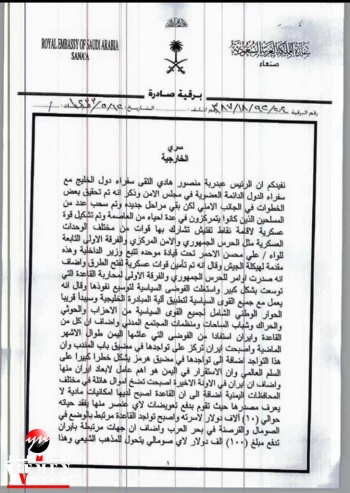 ROYAL EMBASSY OF SAUDI ARABIA
SANA'A
سفارة المملكة العربية السعودية
صنعاء
برقية صادرة
رقم البرقية
التاريخ
سري
الخارجية
نفيدكم ان الرئيس عبدربة منصور هادي التقى سفراء دول الخليج مع
سفراء الدول الدائمة العضوية في مجلس الامن وذكر انه تم تحقيق بعض
الخطوات في الجانب الامني لكن بقي مراحل جديده وتم سحب عدد من
المسلحين الذين كانوا يتمركزون في عدة احياء من العاصمة وتم تشكيل قوة
عسكرية لاقامة نقاط تفتيش تشارك بها قوات من مختلف الوحدات
العسكرية مثل الحرس الجمهوري والامن المركزي والفرقة الاولى التابعة
للواء / علي محسن الاحمر تحت قيادة موحده تتبع وزير الداخلية وهذه
مقدمة لهيكلة الجيش وقال انه تم تأمين قوات عسكرية لفتح الطرق واضاف
انه صدرت اوامر للحرس الجمهوري والفرقة الاولى لمحاربة القاعدة التي
توسعت بشكل كبير واستغلت الفوضى السياسية لتوسيع نفوذها وقال انه
يعمل مع جميع القوى السياسية لتطبيق آلية المبادرة الخليجية وسيبدأ قريبا
الحوار الوطني الشامل لجميع القوى السياسية من الاحزاب والحوثي
والحراك وشباب الساحات ومنظمات المجتمع المدني واضاف ان كل من
القاعدة وايران استفادا من الفوضى التي عاشها اليمن طوال الاشهر
الماضية واصبحت ايران تركز على تواجدها في مضيق باب المندب وان
هذا التواجد اضافة الى تواجدها في مضيق هرمز يشكل خطرا كبيرا على
السلم العالمي وان الاستقرار في اليمن هو اهم عامل لابعاد ايران منها
واضاف ان ايران في الاونة الاخيرة اصبحت تضخ اموال هائلة في مختلف
المحافظات اليمنية اضافة الى ان القاعدة اصبح لديها امكانيات مادية لا
يعرف مصدرها حيث تقوم بدفع تعويضات لاي عنصر منها يفقد حياته
حوالي (١٠) الاف دولار لاسرته واصبح تواجد القاعدة مرتبط بالوضع في
الصومال والقرصنة في بحر العرب واضاف ان جهات مرتبطة بايران
تدفع مبلغ (١٠٠) الف دولار لاي صومالي يتحول للمذهب الشيعي وهذا
١